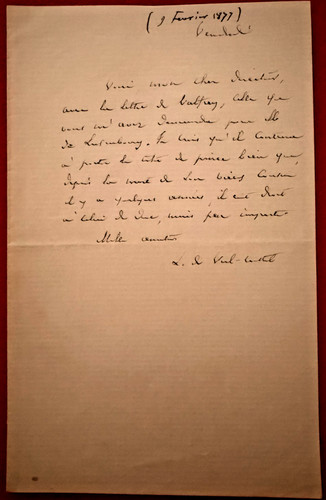 (9 Février 1877)
Vendredi
Voici mon cher directeur,
avec la lettre de Valfrey, celle que
vous m'avez demandée pour
de Luxembourg. Je crois qu'il continue
à porter le titre de prince bien que,
depuis la mort de son vieux cousin
il y a quelques années, il eut droit
à celui de duc, mais peu importe
Mille amitiés
L. de Viel-Castel